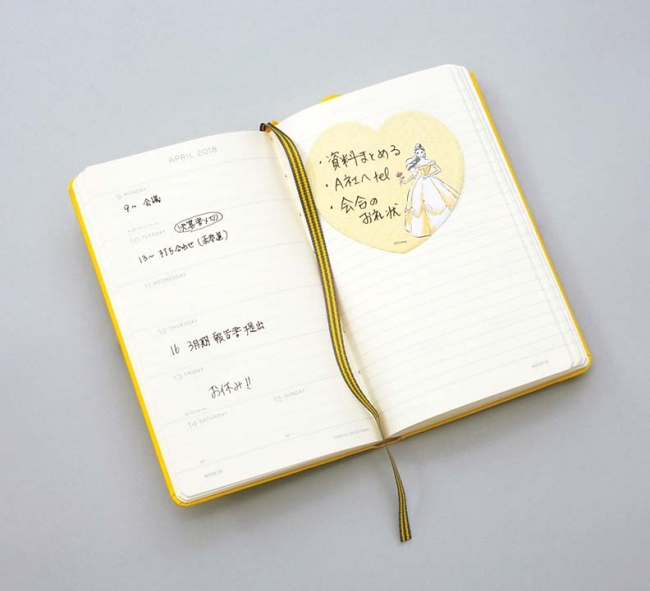 APRIL 2018
9 MONDAY
9〜 会議
10 TUESDAY
13〜 打ち合わせ(
11 WEDNESDAY
12 THURSDAY
16 3月期 報告書 提出
13 FRIDAY
お休み!!
14 SATURDAY
15 SUNDAY
・資料まとめる
・A社へtel
・会合の
お礼状